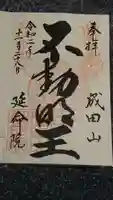 奉拝
成田山
不動明王
延命院
令和二年
十一月二十八日